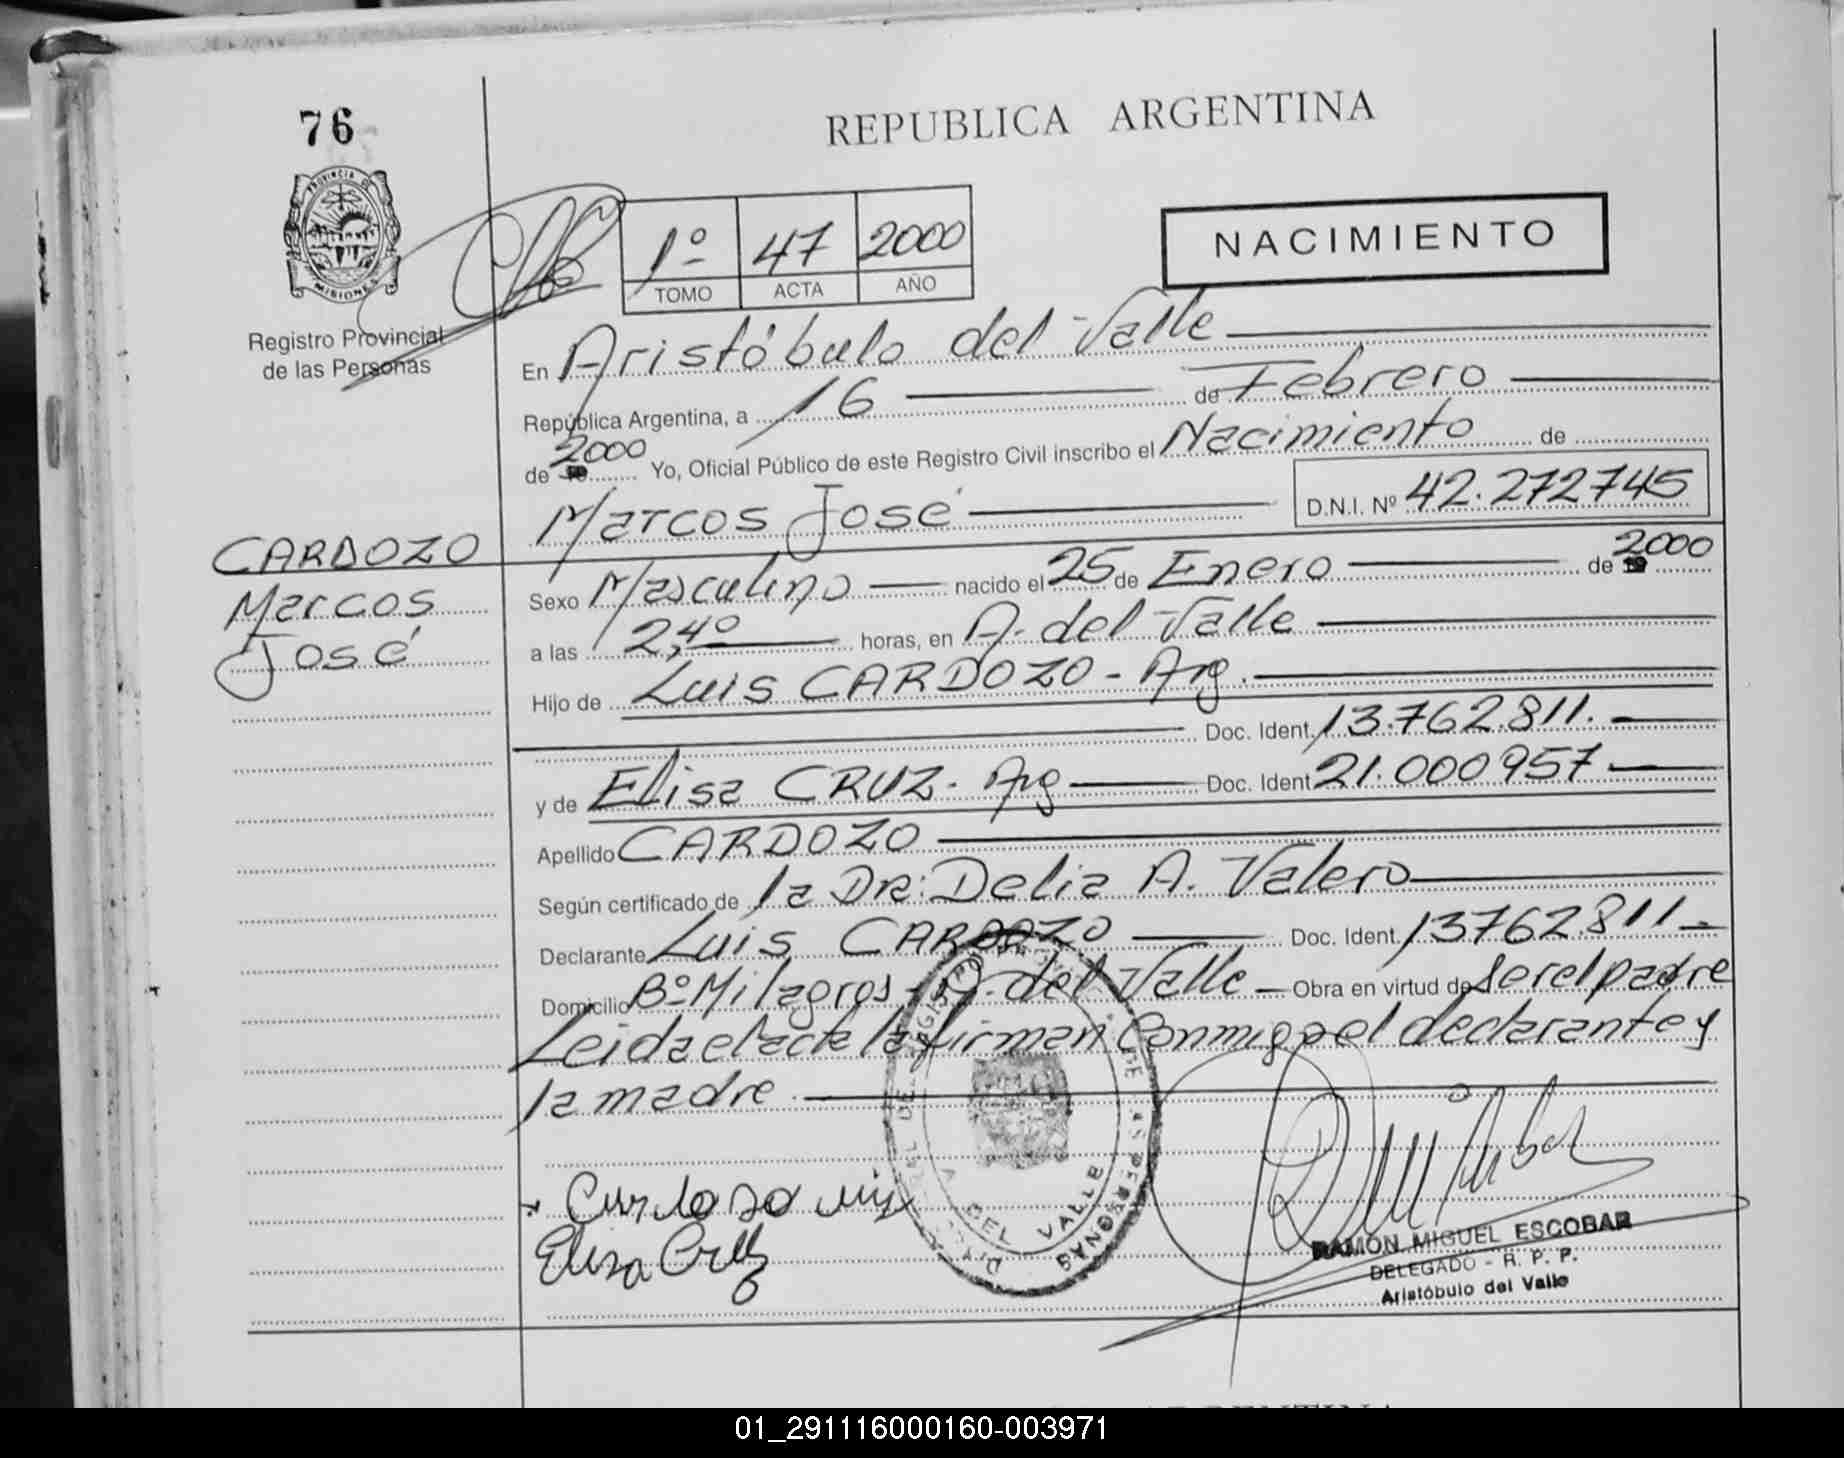 76
REPUBLICA ARGENTINA
PROVINCIA DE
MISIONES
Registro Provincial
de las Personas
1º 47 2000
TOMO ACTA AÑO
NACIMIENTO
En Aristóbulo del Valle
República Argentina, a 16 de Febrero
de 2000 Yo, Oficial Público de este Registro Civil inscribo el Nacimiento de
Marcos José D.N.I. Nº 42.272745
CARDOZO
Marcos
José
Sexo Masculino nacido el 25 de Enero de 2000
a las 2,4º horas, en A. del Valle
Hijo de Luis CARDOZO - Arg.
Doc. Ident. 13.762.811.
y de Elisa CRUZ - Arg Doc. Ident 21.000957
Apellido CARDOZO
Según certificado de la DRa: Delia A. Valero
Declarante Luis CARDOZO Doc. Ident. 13762.811
Domicilio Bº Milagros - A. del Valle Obra en virtud de ser el padre
Leida el acta la firman Conmigo el declarante y
la madre
DEL VALLE
Cardoso luis
Elisa Cruz
RAMON MIGUEL ESCOBAR
DELEGADO - R. P. P.
Aristóbulo del Valle
01_291116000160-003971